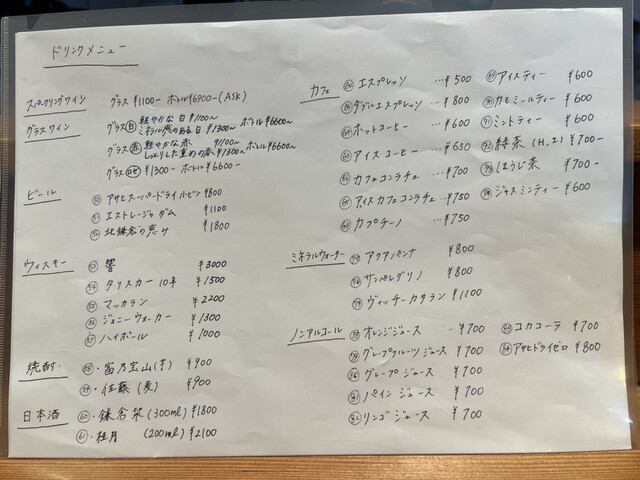 ドリンクメニュー
スパークリングワイン グラス ¥1100- ボトル¥6900-(Ask)
グラスワイン グラス(白) 軽やかな白 ¥1100~
ミネラル感のある白 ¥1300~ ボトル ¥6600~
グラス(赤) 軽やかな赤 ¥1100~
しっとりした重めの赤 ¥1300~ ボトル ¥6600~
グラス(ロゼ) ¥1300- ボトル ¥6600-
ビール アサヒスーパードライ小ビン ¥800
エストレージャダム ¥1100
北鎌倉の恵み ¥1800
ウィスキー 53 響 ¥3000
54 タリスカー 10年 ¥1500
55 マッカラン ¥2200
56 ジョニーウォーカー ¥1300
57 ハイボール ¥1000
焼酎 58・富乃宝山(芋) ¥900
59・佐藤(麦) ¥900
日本酒 60・鎌倉栞(300ml) ¥1800
61・桂月 (200ml) ¥2100
カフェ エスプレッソ …¥500
ダブルエスプレッソ …¥800
ホットコーヒー …¥600
アイスコーヒー …¥650
カフェコンラチェ …¥700
アイスカフェコンラチェ …¥750
カプチーノ …¥750
アイスティー ¥600
カモミールティー ¥600
ミントティー ¥600
緑茶(H,I) ¥700-
ほうじ茶 ¥700-
ジャスミンティー ¥600
ミネラルウォーター アクアパンナ ¥800
サンペレグリノ ¥800
ヴィッチーカタラン ¥1100
ノンアルコール オレンジジュース ¥700
グレープフルーツジュース ¥700
グレープジュース ¥700
パインジュース ¥700
リンゴジュース ¥700
コカコーラ ¥700
アサヒドライゼロ ¥800